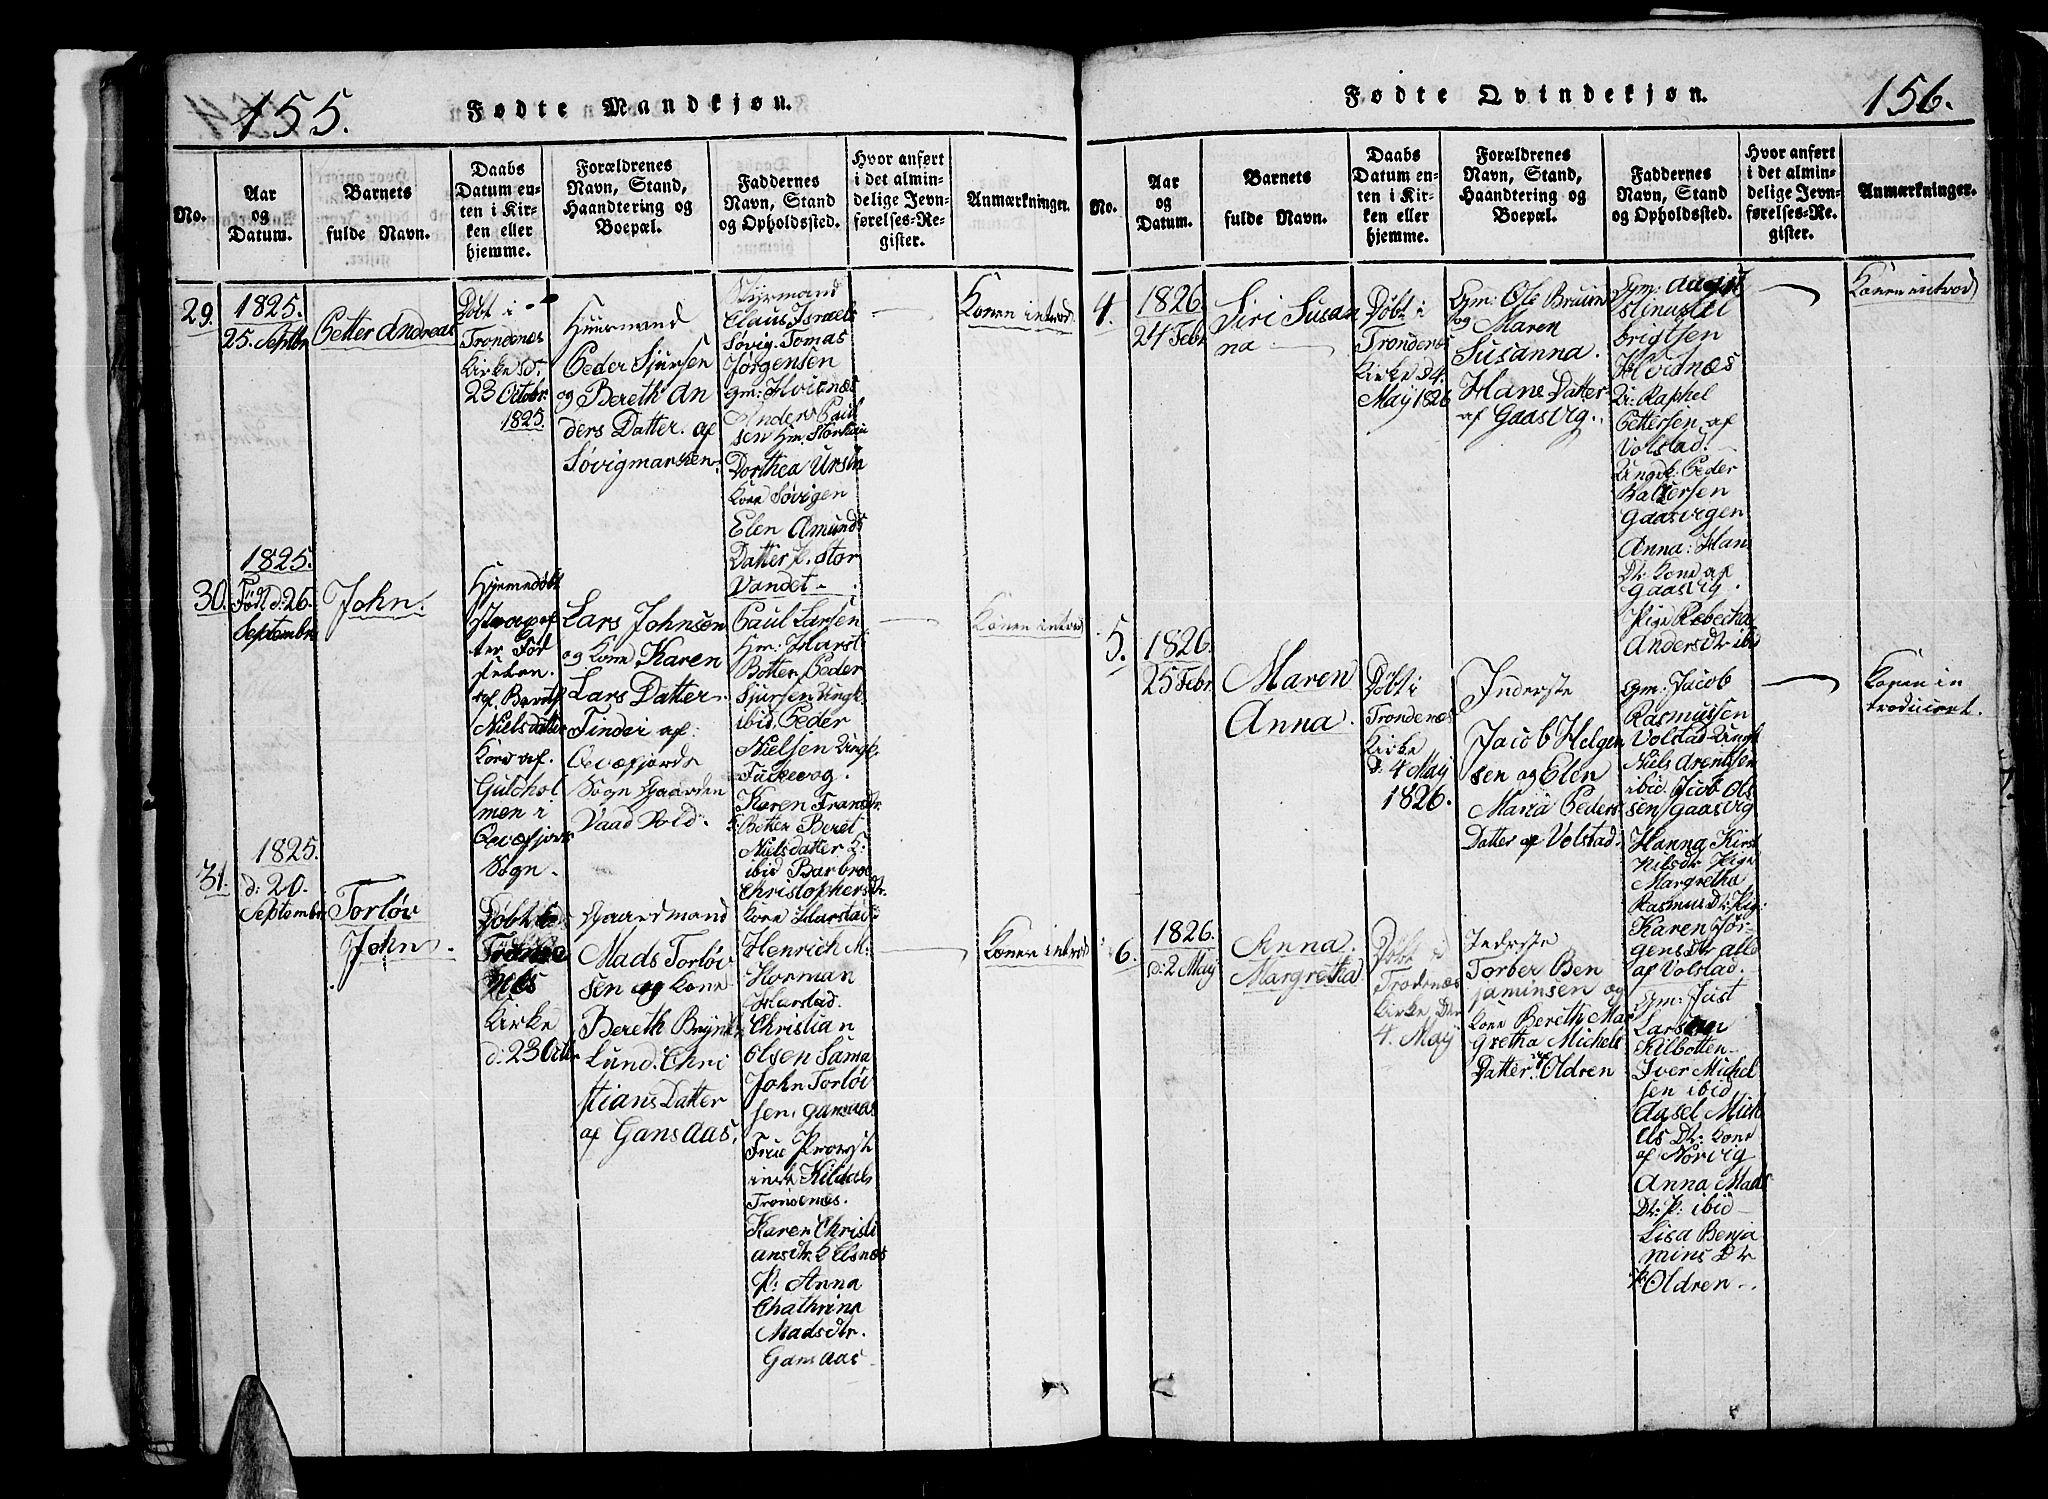 155.
Fødte Mandkjøn.
No.
Aar
og
Datum.
Barnets
fulde Navn.
Daabs
Datum en-
ten i Kir-
ken eller
hjemme.
Forældrenes
Navn, Stand,
Haandtering og
Boepæl.
Faddernes
Navn, Stand
og Opholdssted.
Hvor anført
i det almin-
delige Jevn-
førelses-Re-
gister.
Anmærkninger.
29.
1825.
25. Septbr
Petter Andreas
Døbt i
Trondenes
Kirke d:
23 Octobr.
1825.
Huusmand
Peder Sjursen
og Bereth An
ders Datter. af
Søvigmarken.
Styrmand
Claus Israels
Søvig. Tomas
Jørgensen
Gm: Hvidnæs
Anders Paul
sen Hm.
Dorthea Ursin
Kone Søvigen
Elen Amunds
Datter P. Stor
Vandet
Konen introd
30.
1825.
Född d: 26.
Septembr
John.
Hjemedøbt
af Bereth
Nielsdatter
Kone af
Gulhol
men i
Qvæfjords
Sogn.
Lars Johnsen
og Kone Karen
Lars Datter.
af
Qvæfjords
Sogn Gaarden
Vaad Vold.
Paul Larsen
Hm: Harst
Botten Peder
Sjursen Ungk
ibid. Peder
Nielsen Ungk.
Karen Frans Dr.
Botten Beret
Nielsdatter K:
ibid Barbroe
Christophersdr.
Kone Harstad
Konen introd
31.
1825.
d: 20.
Septembr
Torløv
John.
Døbt
Trondenes
Kirke
d: 23 Octbr
Gaardmand
Mads Torløv
sen og Kone
Bereth Brynie
Lund. Chri
stians Datter
af Gansaas.
Henrich M:
Horman
Harstad.
Christian
Olsen Sama
John Torløv
sen. Gansaas
Frue Provst
inde Kildals
Trondenes.
Karen Christi
ansdr. K Elsnæs
P: Anna
Chathrina
Madsdtr.
Gansaas
Konen introd
156.
Fødte Qvindekjøn.
No.
Aar
og
Datum.
Barnets
fulde Navn.
Daabs
Datum en-
ten i Kir-
ken eller
hjemme.
Forældrenes
Navn, Stand,
Haandtering og
Boepæl.
Faddernes
Navn, Stand
og Opholdssted.
Hvor anført
i det almin-
delige Jevn-
førelses-Re-
gister.
Anmærkninger.
4.
1826
24 Febr
Siri Susan
na
Døbt i
Trondenes
Kirke d 4.
May 1826
Gm: Ole Bruun
og Maren
Susanna.
Hans Datter
af Gaasvig.
Gm: August
brigtsen
Hvidnæs
Raphel
Pettersen af
Volstad.
Ungk: Peder
Baltsersen
Gaasvigen
Anna: Hans
Dr: Kone af
Gaasvig.
Pige Rebecha
Anders Dr ibid
Konen introd
5.
1826.
25 Febr.
Maren
Anna.
Døbt i
Trondenes
Kirke
d: 4 May
1826.
Inderste
Jacob Helgen
sen og Elen
Maria Peders
Datter af Volstad.
Gm: Jacob
Rasmussen
Volstad. Ungk
Niels Arentsen
ibid Jacob Ols
sen Gaasvig
Hanna Kirst
Nilsdr Pige
Margretha
Rasmus Dr Pig:
Karen Jør-
gensdr alle
af Volstad.
Konen in
troduceret.
6.
1826.
d: 2 May
Anna.
Margretha.
Døbt i
Trondenæs
Kirke Den
4. May
Inderste
Torber Ben
jaminsen og
Kone Bereth Mar
gretha Michels
Datter. af Oldren
Gm: Just
Larsen
Kilbotten
Iver Michel
sen ibid
Agsel Mich
els Dr: Kone
af Norvig
Anna Mads
Dr: P: ibid
Lisa Benja
mins Dr
P: Oldren